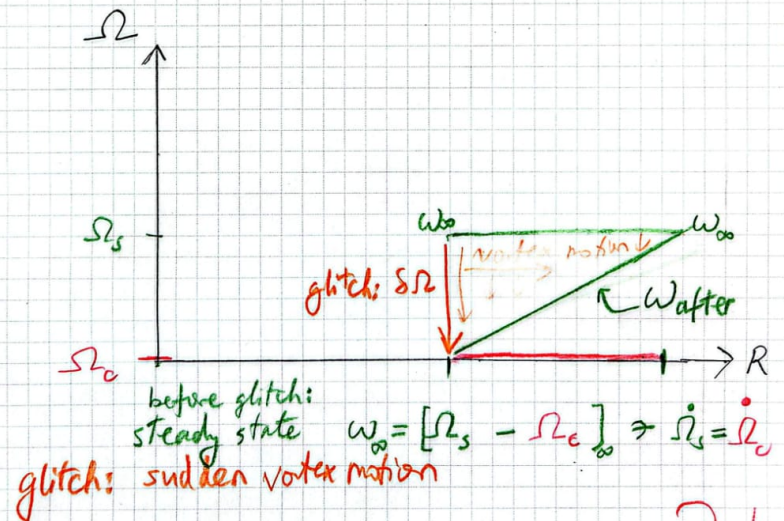 Ω
Ωs
ω∞ ω∞
vortex motion
glitch: δΩ
ωafter
Ωc
R
before glitch:
steady state ω∞ = [Ωs - Ωc]∞ → Ω̇s = Ω̇c
glitch: sudden vortex motion